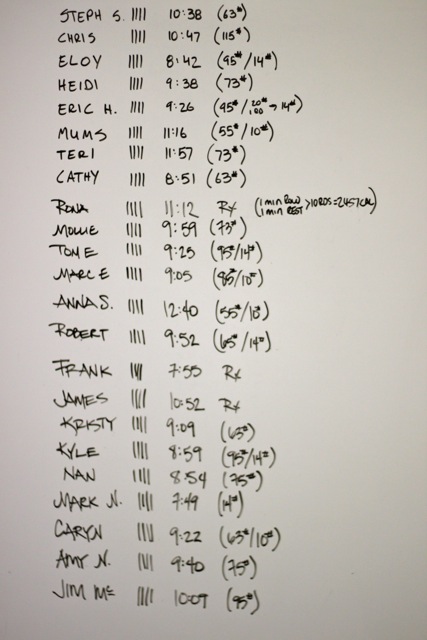 STEPH S. |||| 10:38 (63#)
CHRIS |||| 10:47 (115#)
ELOY |||| 8:42 (95#/14#)
HEIDI |||| 9:38 (73#)
ERIC H. |||| 9:26 (95#/20#/100 → 14#)
MUMS |||| 11:16 (55#/10#)
TERI |||| 11:57 (73#)
CATHY |||| 8:51 (63#)
RONA |||| 11:12 Rx (1 min ROW 1 min REST > 10 RDS = 245 CAL)
MOLLIE |||| 9:59 (73#)
TOM E |||| 9:25 (95#/14#)
MARC E |||| 9:05 (85#/10#)
ANNA S. |||| 12:40 (55#/10#)
ROBERT |||| 9:52 (65#/14#)
FRANK |||| 7:55 Rx
JAMES |||| 10:52 Rx
KRISTY |||| 9:09 (63#)
KYLE |||| 8:59 (95#/14#)
NAN |||| 8:54 (75#)
MARK N. |||| 7:49 (14#)
CARYN |||| 9:22 (63#/10#)
AMY N. |||| 9:40 (75#)
JIM Mc |||| 10:09 (95#)